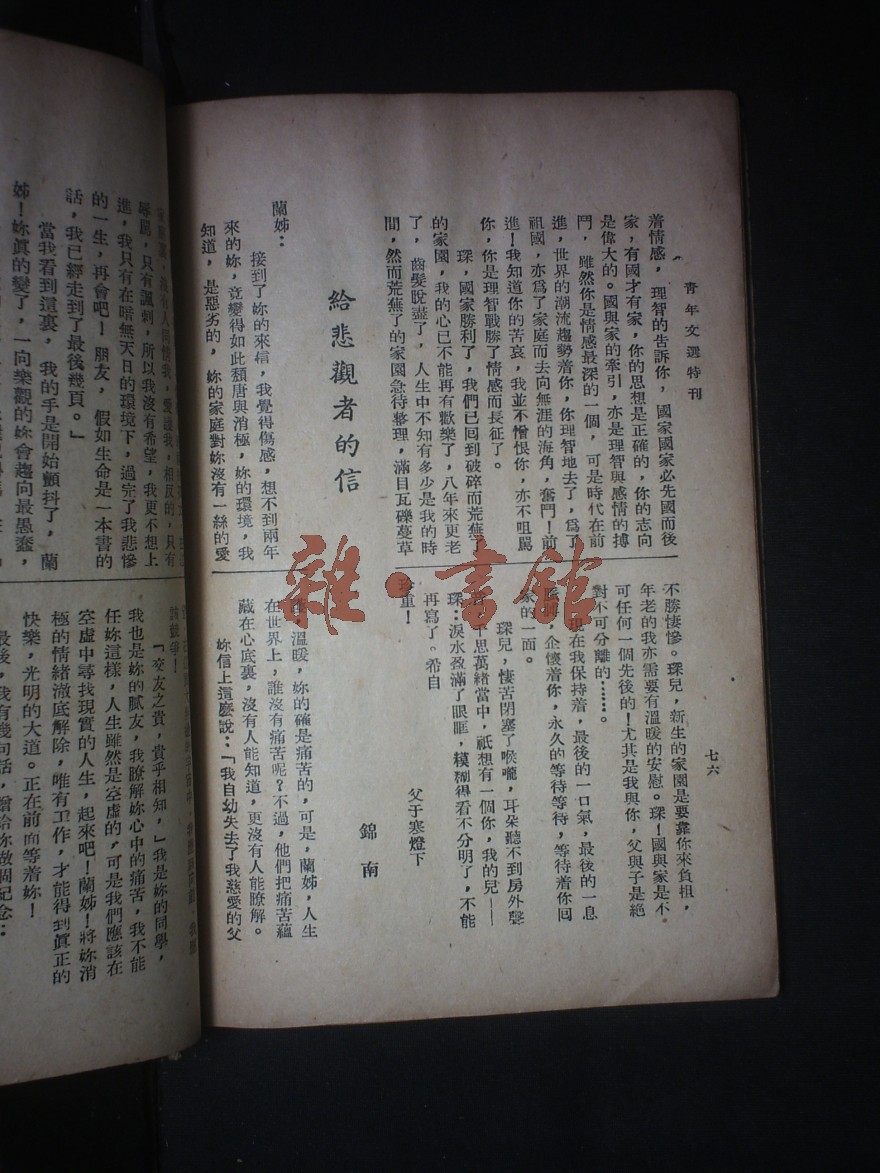 青年文選特刊
七六
着情感，理智的告訴你，國家國家必先國而後
家，有國才有家，你的思想是正確的，你的志向
是偉大的。國與家的牽引，亦是理智與感情的搏
鬥，雖然你是情感最深的一個，可是時代在前
進，世界的潮流趨勢着你，你理智地去了，爲了
祖國，亦爲了家庭而去向無涯的海角，奮鬥！前
進！我知道你的苦哀，我並不憎恨你，亦不咀罵
你，你是理智戰勝了情感而長征了。
琛，國家勝利了，我們已回到破碎而荒蕪了
的家園，我的心已不能再有歡樂了，八年來更老
了，齒髮脫盡了，人生中不知有多少是我的時
間，然而荒蕪了的家園急待整理，滿目瓦礫蔓草
不勝悽慘。琛兒，新生的家園是要靠你來負担，
年老的我亦需要有溫暖的安慰。琛！國與家是不
可任何一個先後的！尤其是我與你，父與子是絕
對不可分離的……。
現在我保持着，最後的一口氣，最後的一息
，企懷着你，永久的等待等待，等待着你囘
家的一面。
琛兒，悽苦閉塞了喉嚨，耳朵聽不到房外聲
，平思萬緒當中，祇想有一個你，我的兒——
琛：淚水盈滿了眼眶，模糊得看不分明了，不能
再寫了。希自
珍重！
父于寒燈下
給悲觀者的信
錦南
蘭姊：
接到了妳的來信，我覺得傷感，想不到兩年
來的妳，竟變得如此頹唐與消極，妳的環境，我
知道，是惡劣的，妳的家庭對妳沒有一絲的愛
，溫暖，妳的確是痛苦的，可是，蘭姊，人生
在世界上，誰沒有痛苦呢？不過，他們把痛苦蘊
藏在心底裏，沒有人能知道，更沒有人能瞭解。
妳信上這麽說：「我自幼失去了我慈愛的父
人同情我，愛護我，相反的，只有
辱罵，只有諷刺，所以我沒有希望，我更不想上
進，我只有在暗無天日的環境下，過完了我悲慘
的一生，再會吧！朋友，假如生命是一本書的
話，我已經走到了最後幾頁。」
當我看到這裏，我的手是開始顫抖了，蘭
姊！妳眞的變了，一向樂觀的妳會趨向最愚蠢，
「交友之貴，貴乎相知，」我是妳的同學，
我也是妳的膩友，我瞭解妳心中的痛苦，我不能
任妳這樣，人生雖然是空虛的，可是我們應該在
空虛中尋找現實的人生，起來吧！蘭姊！將妳消
極的情緒澈底解除，唯有工作，才能得到眞正的
快樂，光明的大道。正在前面等着妳！
最後，我有幾句話，贈給妳做個紀念：
雜·書館